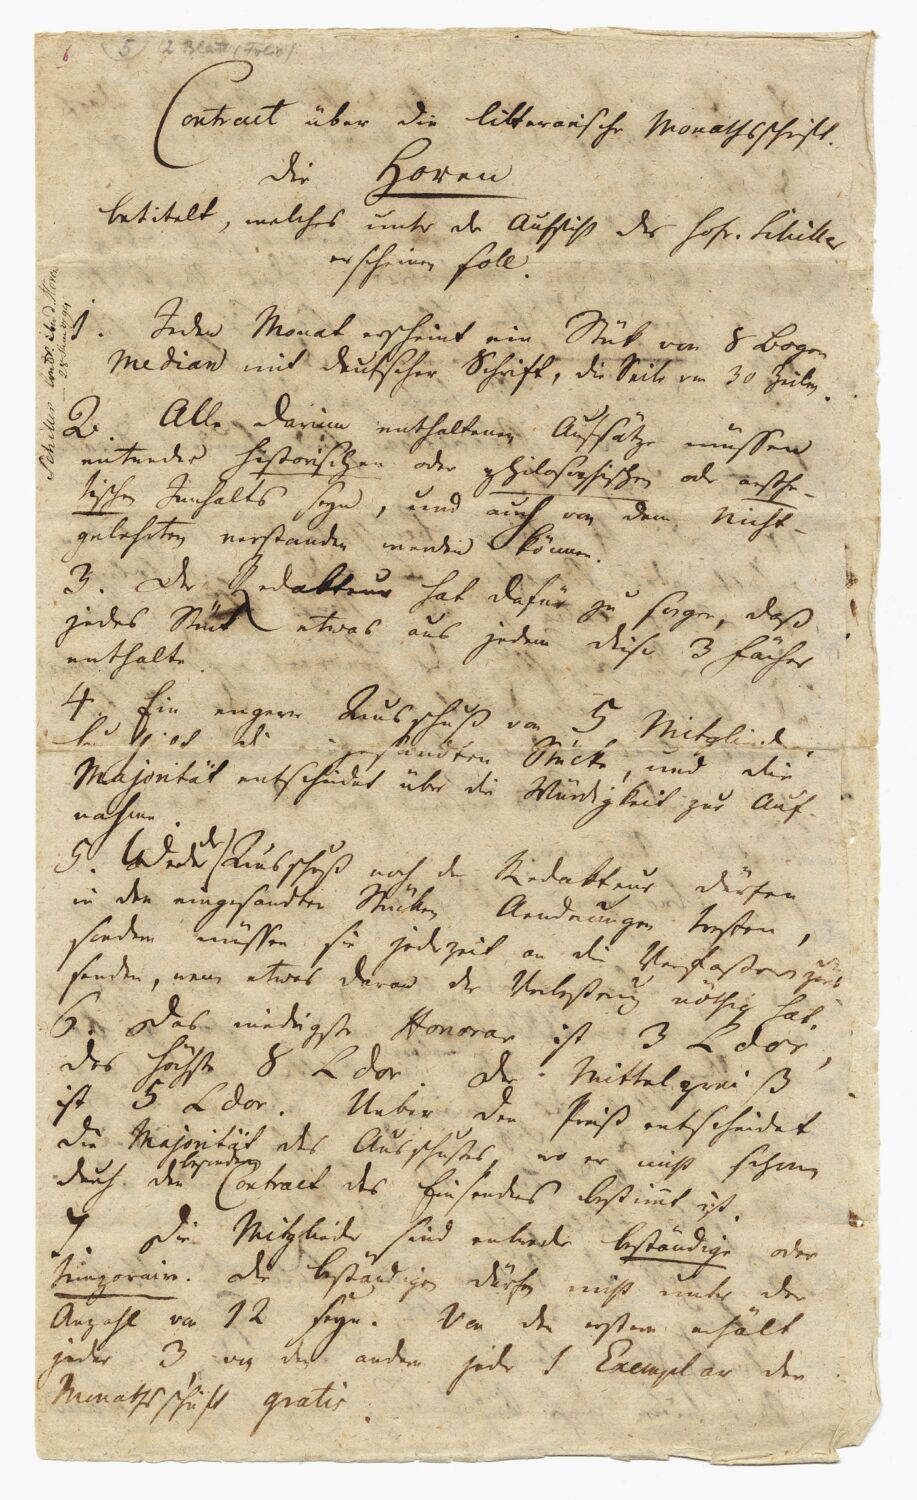 6 5 2 Blatt (Folio)
Contract über die litterarische Monathsschrift.
die Horen
betitelt, welches unter der Aufsicht des Hofr. Schiller
erscheinen soll.
Schiller Contr. üb. d. Horen
28 May 1794
1. Jeden Monat erscheint ein Stük von 8 Bogen
Median mit deutscher Schrift, die Seite von 30 Zeilen.
2. Alle darinn enthaltenen Aufsätze müssen
entweder historischen oder philosophischen oder aesthe-
tischen Innhalts seyn, und auch von dem Nicht-
gelehrten verstanden werden können.
3. Der Redakteur hat dafür zu sorgen, daß
jedes Stük etwas aus jedem dieser 3 Fächer
enthalte.
4. Ein engerer Ausschuß von 5 Mitgliedern
die gesandten Stücke, und die
Majorität entscheidet über die Würdigkeit zur Auf-
nahme.
5. Weder der Ausschuß noch der Redakteur dürfen
in den eingesandten Stücken Aenderungen treffen,
sondern müssen sie jederzeit an die Verfasser zurük
senden, wenn etwas daran der Verbesserung nöthig hat.
6. Das niedrigste Honorar ist 3 Ldor,
das höchste 8 Ldor. Der Mittelpreiß
ist 5 Ldor. Ueber den Preiß entscheidet
die Majorität des Ausschusses, wo er nicht schon
durch den besondern Contract des Einsenders bestimmt ist.
7. Die Mitglieder sind entweder beständige oder
temporaire. Die beständigen dürfen nicht unter der
Anzahl von 12 seyn. Von den erstern erhält
jeder 3, von den andern jeder 1 Exemplar der
Monathsschrift gratis.